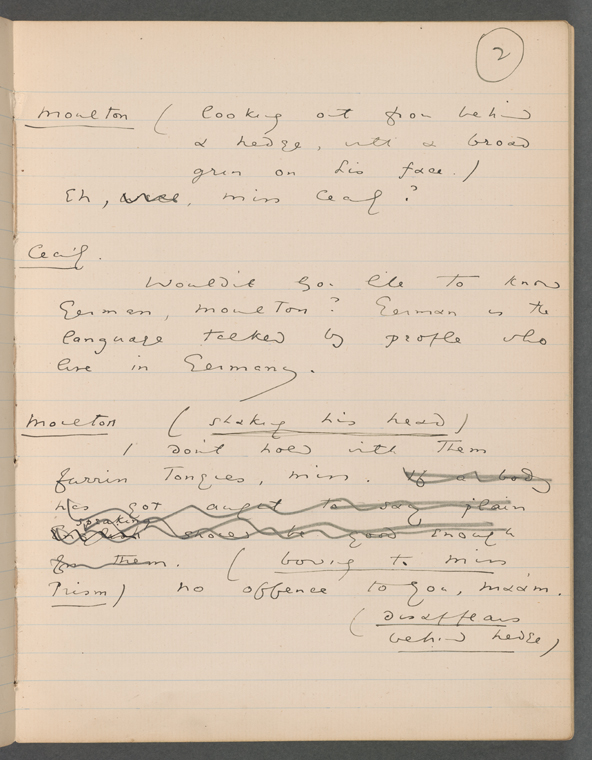 2
Moulton ( looking out from behind
a hedge, with a broad
grin on his face. )
Eh, , miss Cecily ?
Cecily.
Wouldn't you like to know
German, Moulton ? German is the
language talked by people who
live in Germany.
Moulton ( shaking his head )
I don't hold with them
furrin tongues, miss. If a body
has got aught to say plain
speaking
English should be good enough
for them. ( bowing to miss
Prism ) no offence to you, ma'am.
( disappears
behind hedge )